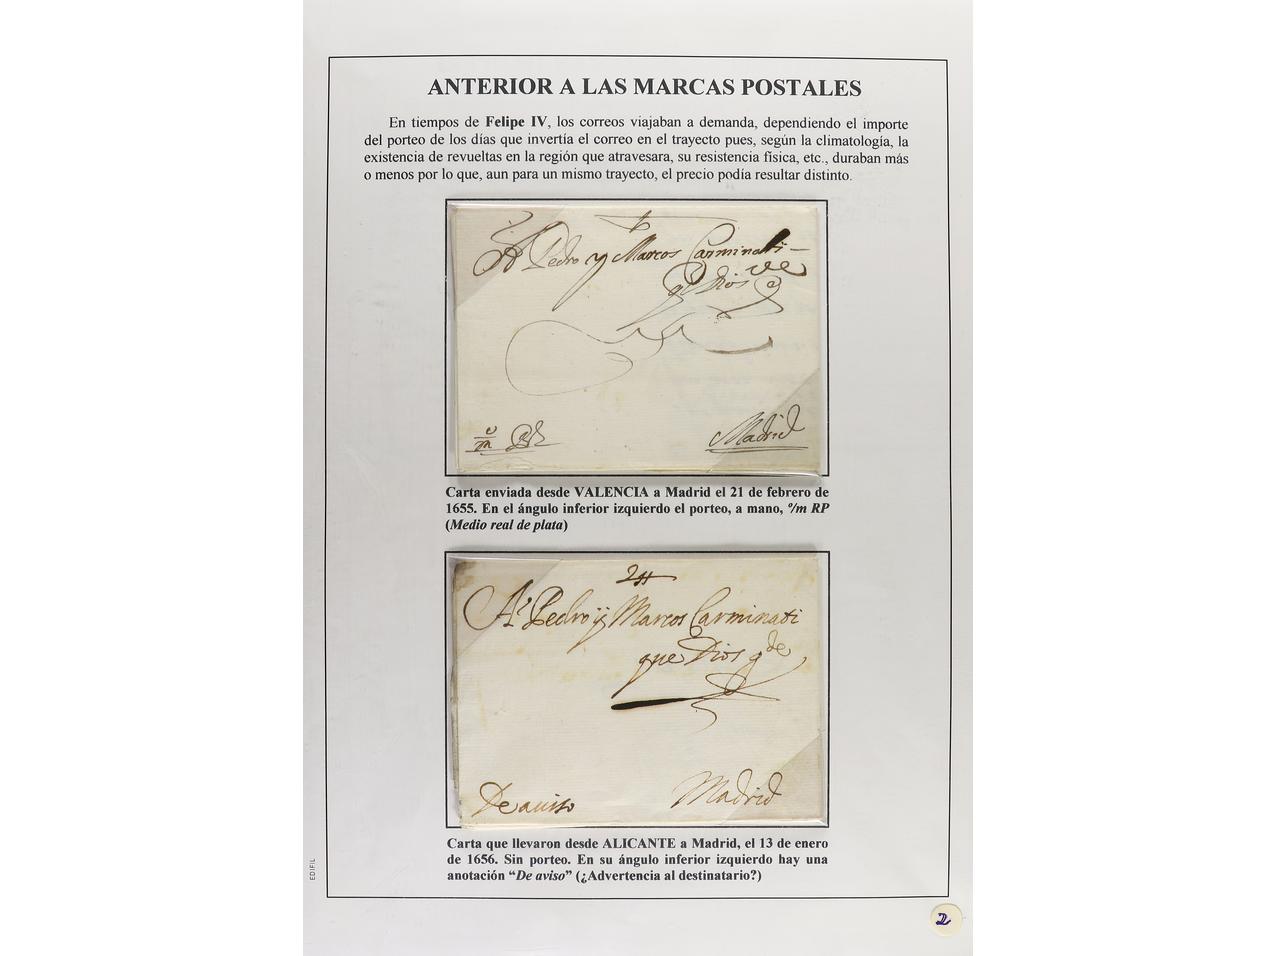 ANTERIOR A LAS MARCAS POSTALES
En tiempos de Felipe IV, los correos viajaban a demanda, dependiendo el importe
del porteo de los días que invertía el correo en el trayecto pues, según la climatología, la
existencia de revueltas en la región que atravesara, su resistencia física, etc., duraban más
o menos por lo que, aun para un mismo trayecto, el precio podía resultar distinto.
A Pedro y Marcos Carminati
Dios
Madrid
Carta enviada desde VALENCIA a Madrid el 21 de febrero de
1655. En el ángulo inferior izquierdo el porteo, a mano, º/m RP
(Medio real de plata)
A Pedro y Marcos Carminati
que Dios gde
De aviso
Madrid
Carta que llevaron desde ALICANTE a Madrid, el 13 de enero
de 1656. Sin porteo. En su ángulo inferior izquierdo hay una
anotación “De aviso” (¿Advertencia al destinatario?)
EDIFIL
2